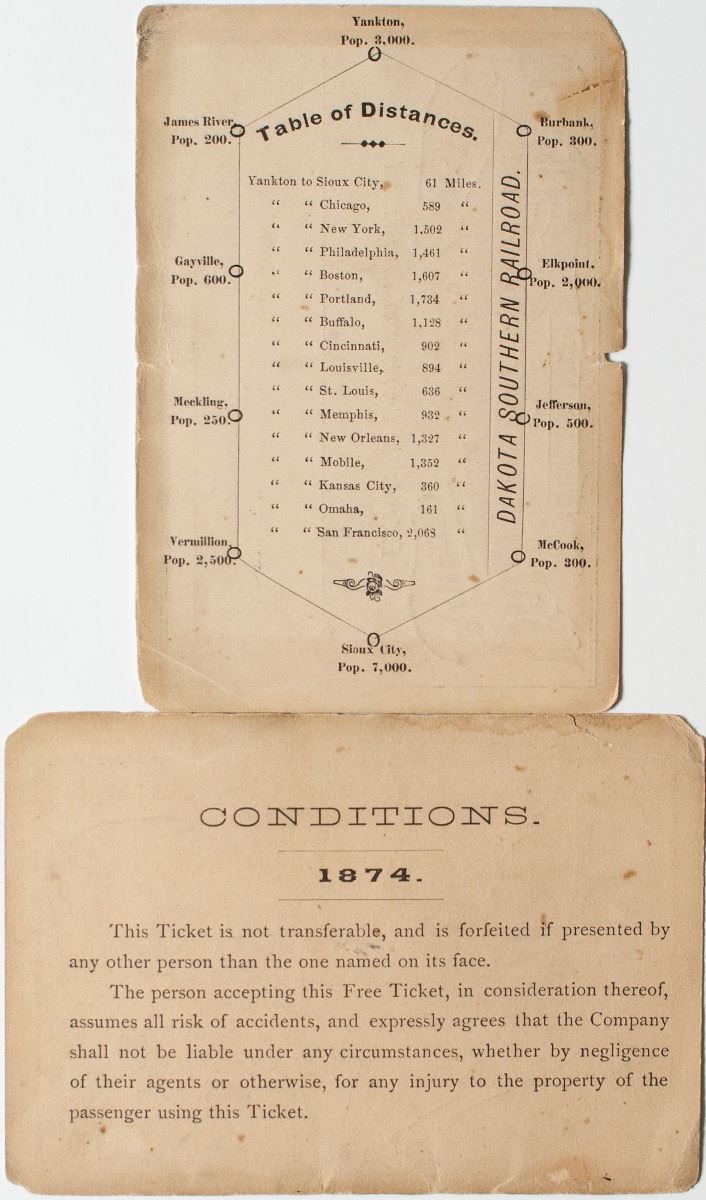 Yankton,
Pop. 3,000.
James River,
Pop. 200.
Burbank,
Pop. 300.
Table of Distances.
Yankton to Sioux City, 61 Miles.
“ “ Chicago, 589 “
“ “ New York, 1,502 “
“ “ Philadelphia, 1,461 “
“ “ Boston, 1,607 “
“ “ Portland, 1,734 “
“ “ Buffalo, 1,128 “
“ “ Cincinnati, 902 “
“ “ Louisville, 894 “
“ “ St. Louis, 636 “
“ “ Memphis, 932 “
“ “ New Orleans, 1,327 “
“ “ Mobile, 1,352 “
“ “ Kansas City, 360 “
“ “ Omaha, 161 “
“ “ San Francisco, 2,068 “
DAKOTA SOUTHERN RAILROAD.
Gayville,
Pop. 600.
Elkpoint,
Pop. 2,000.
Meckling,
Pop. 250.
Jefferson,
Pop. 500.
Vermillion,
Pop. 2,500.
McCook,
Pop. 300.
Sioux City,
Pop. 7,000.
CONDITIONS.
1874.
This Ticket is not transferable, and is forfeited if presented by
any other person than the one named on its face.
The person accepting this Free Ticket, in consideration thereof,
assumes all risk of accidents, and expressly agrees that the Company
shall not be liable under any circumstances, whether by negligence
of their agents or otherwise, for any injury to the property of the
passenger using this Ticket.